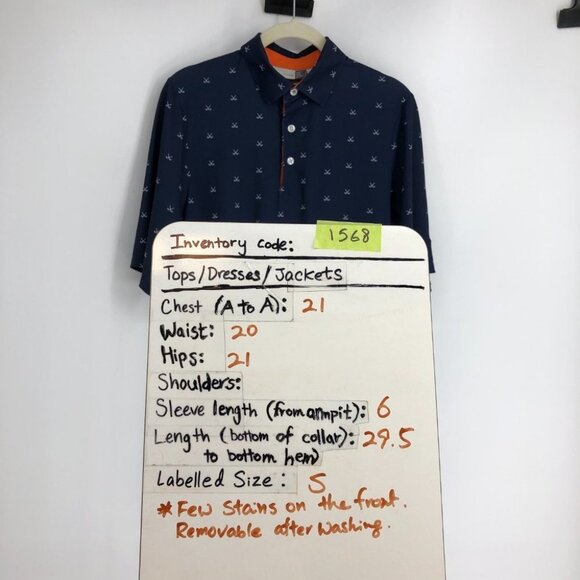 Inventory code: 1568
Tops/Dresses/Jackets
Chest (A to A): 21
Waist: 20
Hips: 21
Shoulders:
Sleeve length (from armpit): 6
Length (bottom of collar): 29.5
to bottom hem)
Labelled Size: S
*Few Stains on the front.
Removable after Washing.